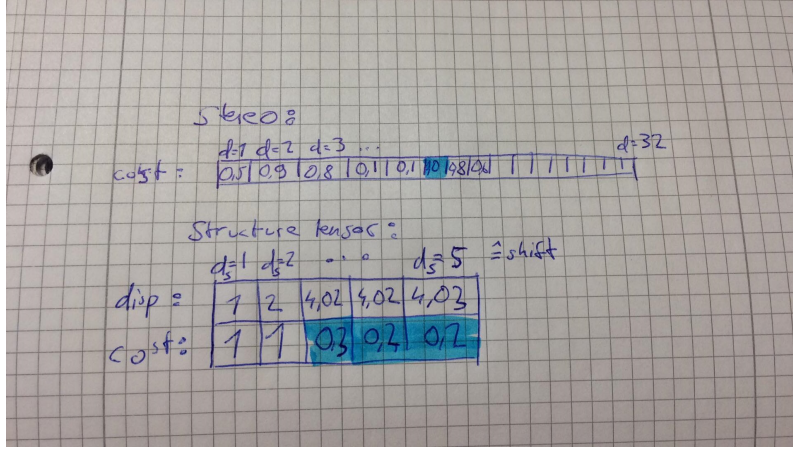 Stereo:
d=1 d=2 d=3 ... d=32
cost: 0,5 0,9 0,8 0,1 0,1 0,8
Structure tensor:
ds=1 ds=2 ... ds=5 ≙ shift
disp: 1 2 4,02 4,02 4,03
cost: 1 1 0,3 0,2 0,2